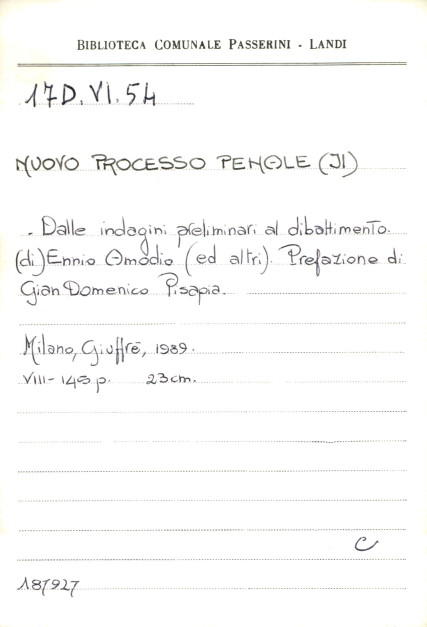 BIBLIOTECA COMUNALE PASSERINI - LANDI
17D.VI.54
NUOVO PROCESSO PENALE (Il)
. Dalle indagini preliminari al dibattimento.
(di) Ennio Amodio (ed altri). Prefazione di
Gian Domenico Pisapia.
Milano, Giuffrè, 1989.
VIII-145 p. 23cm.
C
187927